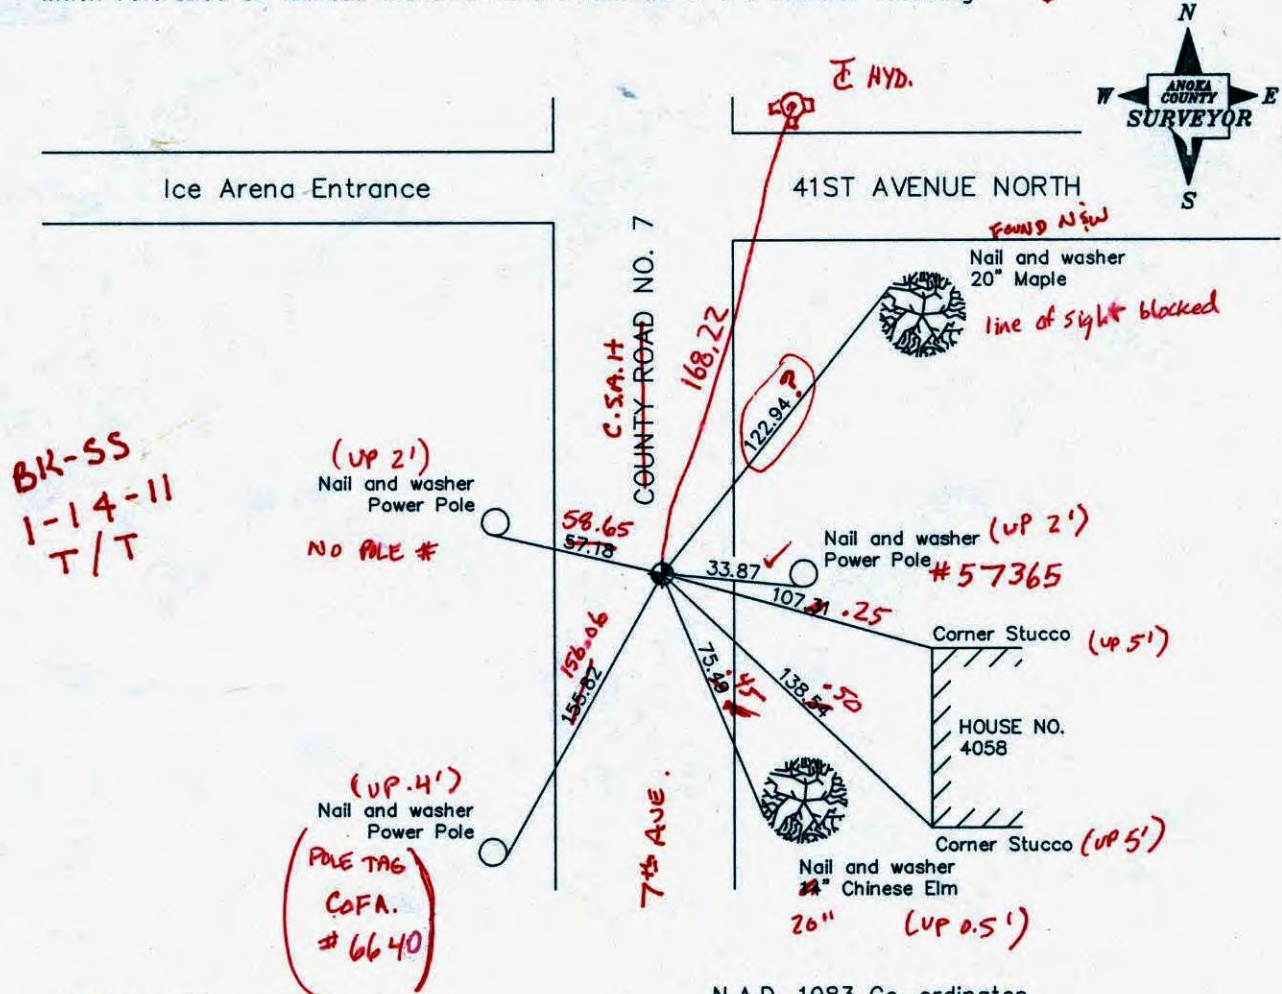 N
W ANOKA COUNTY E
SURVEYOR
S
C HYD.
Ice Arena Entrance
41ST AVENUE NORTH
FOUND N&W
Nail and washer
20" Maple
line of sight blocked
168.22
C.S.A.H
COUNTY ROAD NO. 7
122.94 ?
BK-SS
1-14-11
T/T
(UP 2')
Nail and washer
Power Pole
NO POLE #
58.65
57.18
33.87
Nail and washer (UP 2')
Power Pole #57365
107.31 .25
Corner Stucco (UP 5')
156.06
155.82
75.49 .45
138.54 .50
HOUSE NO.
4058
Corner Stucco (UP 5')
(UP .4')
Nail and washer
Power Pole
POLE TAG
COFA.
#6640
7th AVE.
Nail and washer
14" Chinese Elm
20" (UP 0.5')
N.A.D. 1983 Co-ordinates